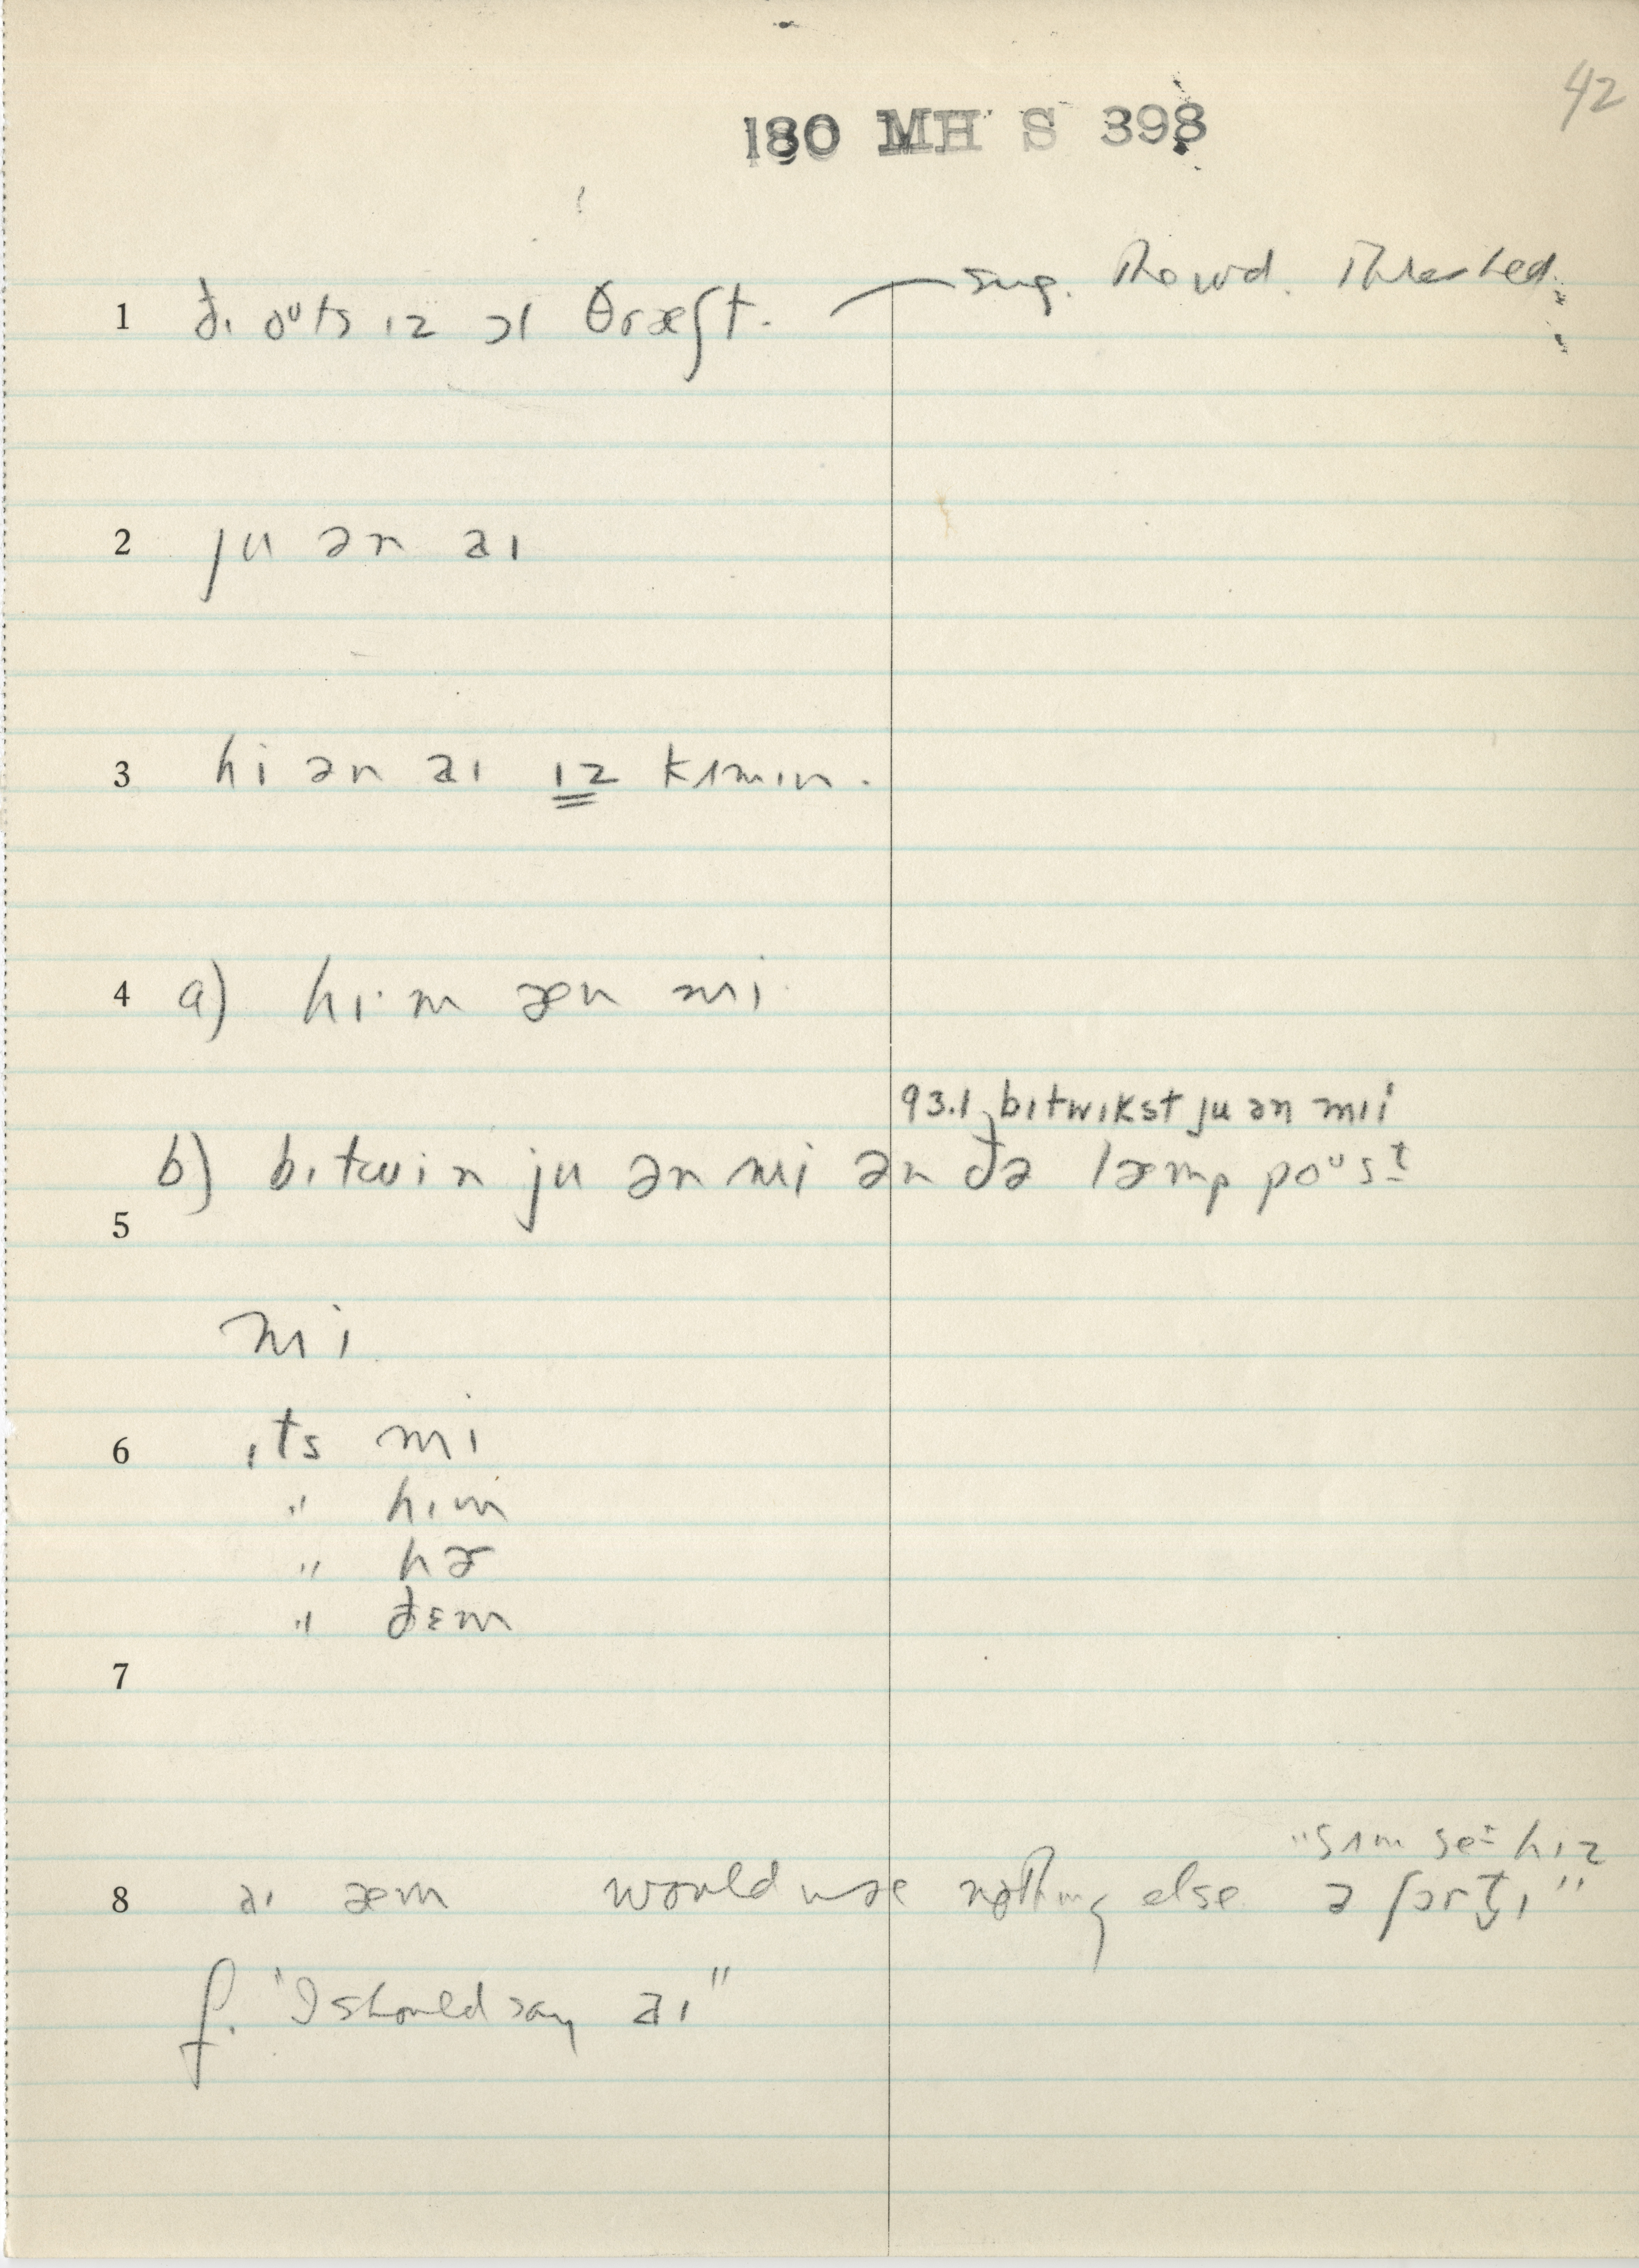 42
180 MH S 398
1 ðɪ oᵘts ɪz ɔl θræʃt. — sug. Thrashed.
2 ju ən aɪ
3 hi ən aɪ ɪz kʌmɪn.
4 a) hɪ·m æn mi
93.1 bɪtwɪkst ju ən mɪi
b) bɪtwin ju ən mi ən ðə læmp poᵘst
5
mi
6 ɪts mi
" hɪm
" hɚ
" ðɛm
7
"sʌm seᶦ hɪz
8 aɪ æm would use nothing else ə fɔrt̬ɪ"
f. "I should say aɪ"